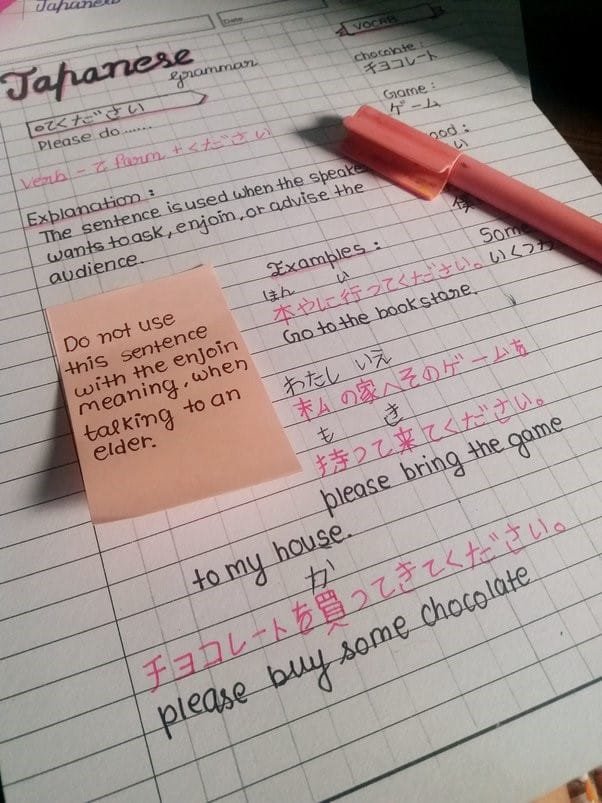 Japanese
Date
Japanese
Grammar
てください
Please do.......
verb - て form + ください
Explanation :
The sentence is used when the speake
wants to ask, enjoin, or advise the
audience.
Do not use
this sentence
with the enjoin
meaning, when
talking to an
elder.
Examples :
ほん い
本やに行ってください。
Go to the bookstore.
わたし いえ
私の家へそのゲームを
も き
持って来てください。
please bring the game
to my house.
か
チョコレートを買ってきてください。
please buy some chocolate
VOCAB
chocolate :
チョコレート
Game :
ゲーム
ood :
い
Some
いくつか